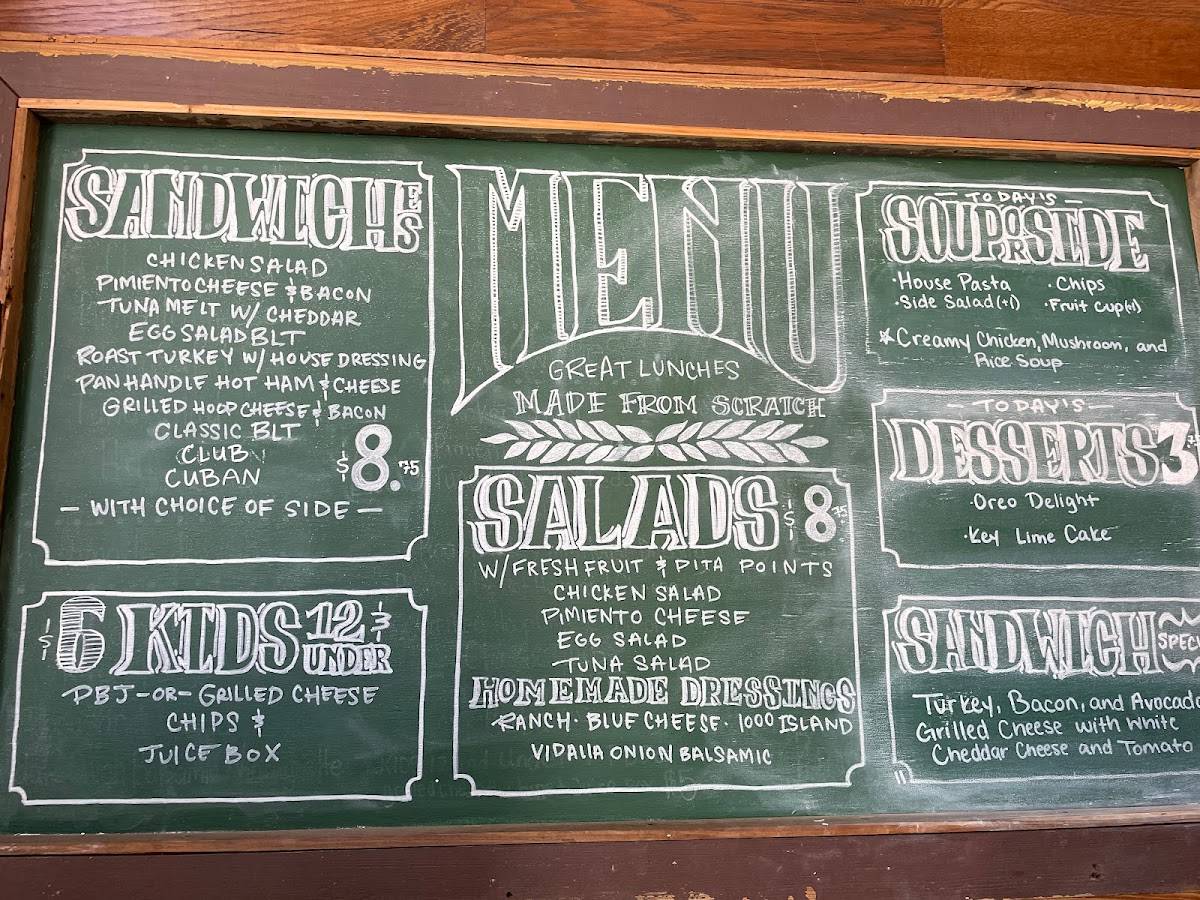 SANDWICHES
CHICKEN SALAD
PIMIENTO CHEESE & BACON
TUNA MELT W/ CHEDDAR
EGG SALAD BLT
ROAST TURKEY W/ HOUSE DRESSING
PANHANDLE HOT HAM & CHEESE
GRILLED HOOP CHEESE & BACON
CLASSIC BLT
CLUB
CUBAN
$8.75
— WITH CHOICE OF SIDE —
$6 KIDS 12 & UNDER
PBJ -OR- GRILLED CHEESE
CHIPS &
JUICE BOX
MENU
GREAT LUNCHES
MADE FROM SCRATCH
SALADS $8.75
W/ FRESH FRUIT & PITA POINTS
CHICKEN SALAD
PIMIENTO CHEESE
EGG SALAD
TUNA SALAD
HOMEMADE DRESSINGS
RANCH · BLUE CHEESE · 1000 ISLAND
VIDALIA ONION BALSAMIC
— TODAY'S —
SOUP OR SIDE
· House Pasta · Chips
· Side Salad (+1) · Fruit Cup (+1)
* Creamy Chicken, Mushroom, and
Rice Soup
— TODAY'S —
DESSERTS 3
· Oreo Delight
· Key Lime Cake
SANDWICH
Turkey, Bacon, and Avocado
Grilled Cheese with White
Cheddar Cheese and Tomato